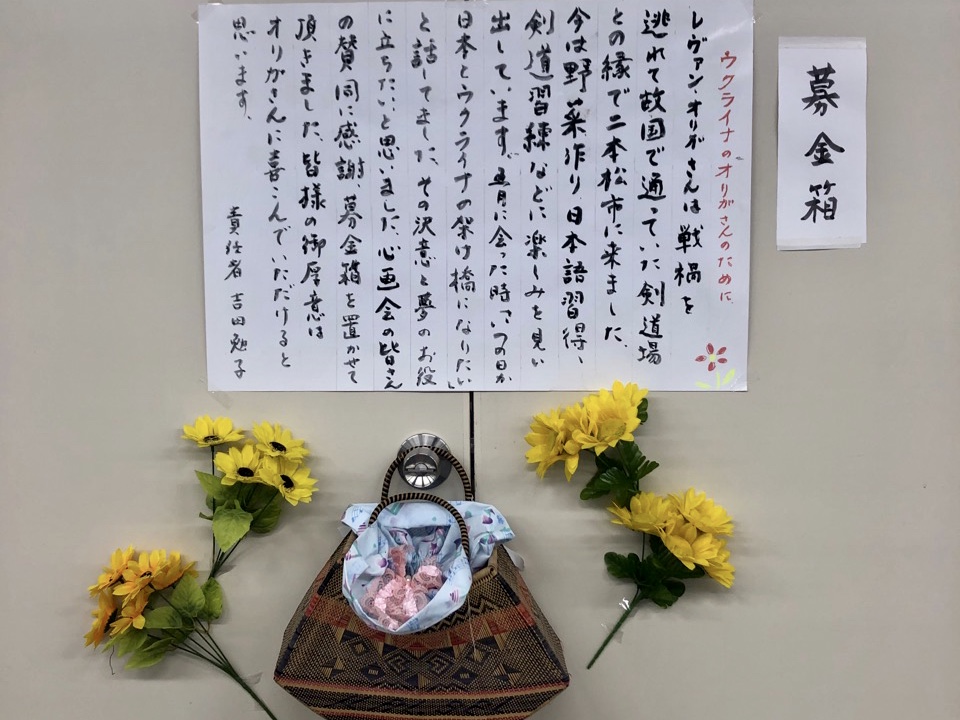 募金箱
ウクライナのオリガさんのために
レヴァンオリガさんは戦禍を
逃れて故国で通っていた剣道場
との縁で二本松市に来ました、
今は野菜作り、日本語習得、
剣道習練などに楽しみを見い
出しています。 月に会った時「いつの日か
日本とウクライナの架け橋になりたい」
と話してました、その決意と夢のお役
に立ちたいと思いました、心画会の皆さん
の賛同に感謝、募金箱を置かせて
頂きました、皆様の御厚意は
オリガさんに喜こんでいただけると
思います。
責任者 吉田 子